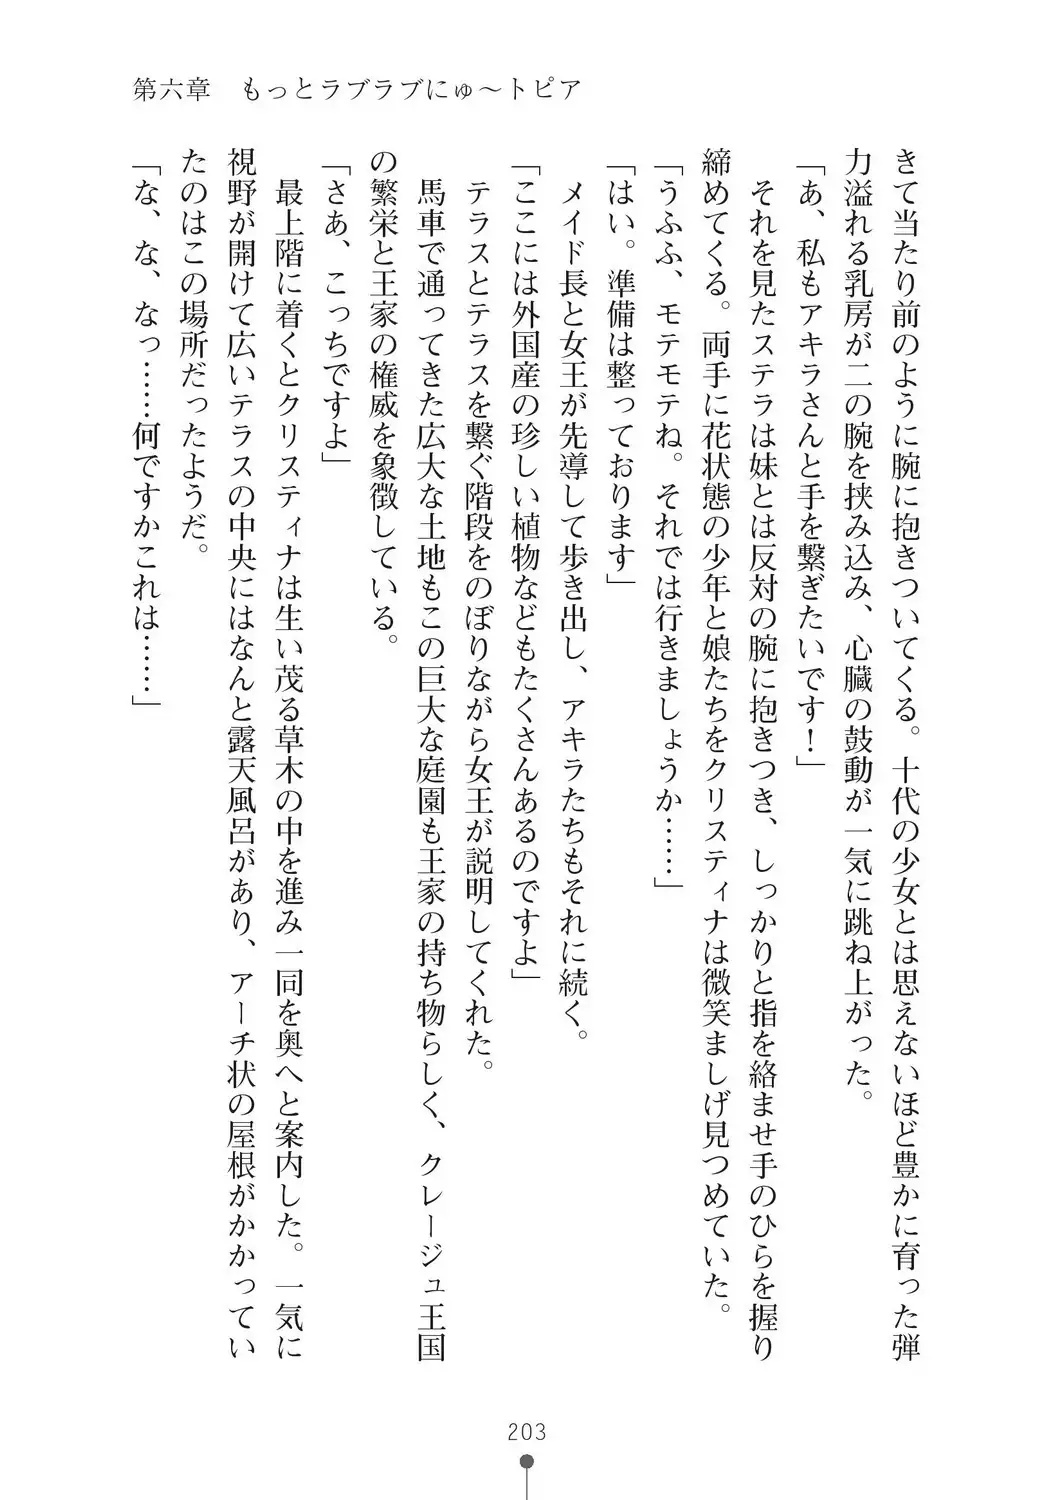 第六章　もっとラブラブにゅ～トピア
きて当たり前のように腕に抱きついてくる。十代の少女とは思えないほど豊かに育った弾
力溢れる乳房が二の腕を挟み込み、心臓の鼓動が一気に跳ね上がった。
「あ、私もアキラさんと手を繋ぎたいです！」
　それを見たステラは妹とは反対の腕に抱きつき、しっかりと指を絡ませ手のひらを握り
締めてくる。両手に花状態の少年と娘たちをクリスティナは微笑ましげ見つめていた。
「うふふ、モテモテね。それでは行きましょうか……」
「はい。準備は整っております」
　メイド長と女王が先導して歩き出し、アキラたちもそれに続く。
「ここには外国産の珍しい植物などもたくさんあるのですよ」
　テラスとテラスを繋ぐ階段をのぼりながら女王が説明してくれた。
　馬車で通ってきた広大な土地もこの巨大な庭園も王家の持ち物らしく、クレージュ王国
の繁栄と王家の権威を象徴している。
「さあ、こっちですよ」
　最上階に着くとクリスティナは生い茂る草木の中を進み一同を奥へと案内した。一気に
視野が開けて広いテラスの中央にはなんと露天風呂があり、アーチ状の屋根がかかってい
たのはこの場所だったようだ。
「な、な、なっ……何ですかこれは……」
203